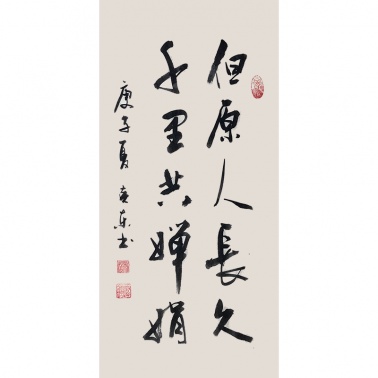 但原人長久
千里共婵娟
庚子夏 东书